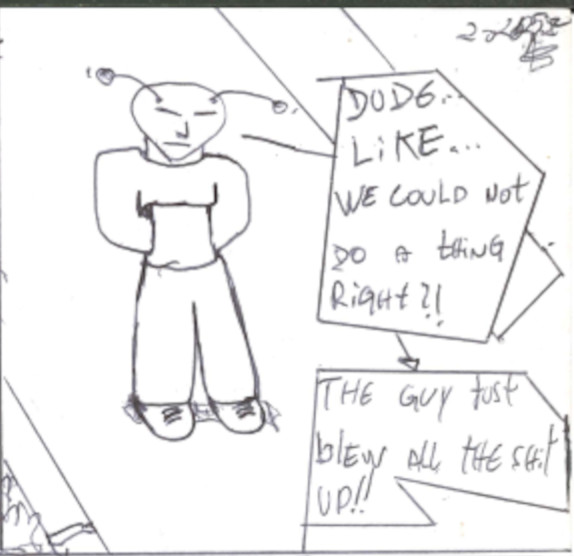 DUDE...
LiKE...
WE COULD NOt
DO A tHiNG
RiGHt?!!
THE GUY JUSt
blEW ALL tHE SHit
UP!!